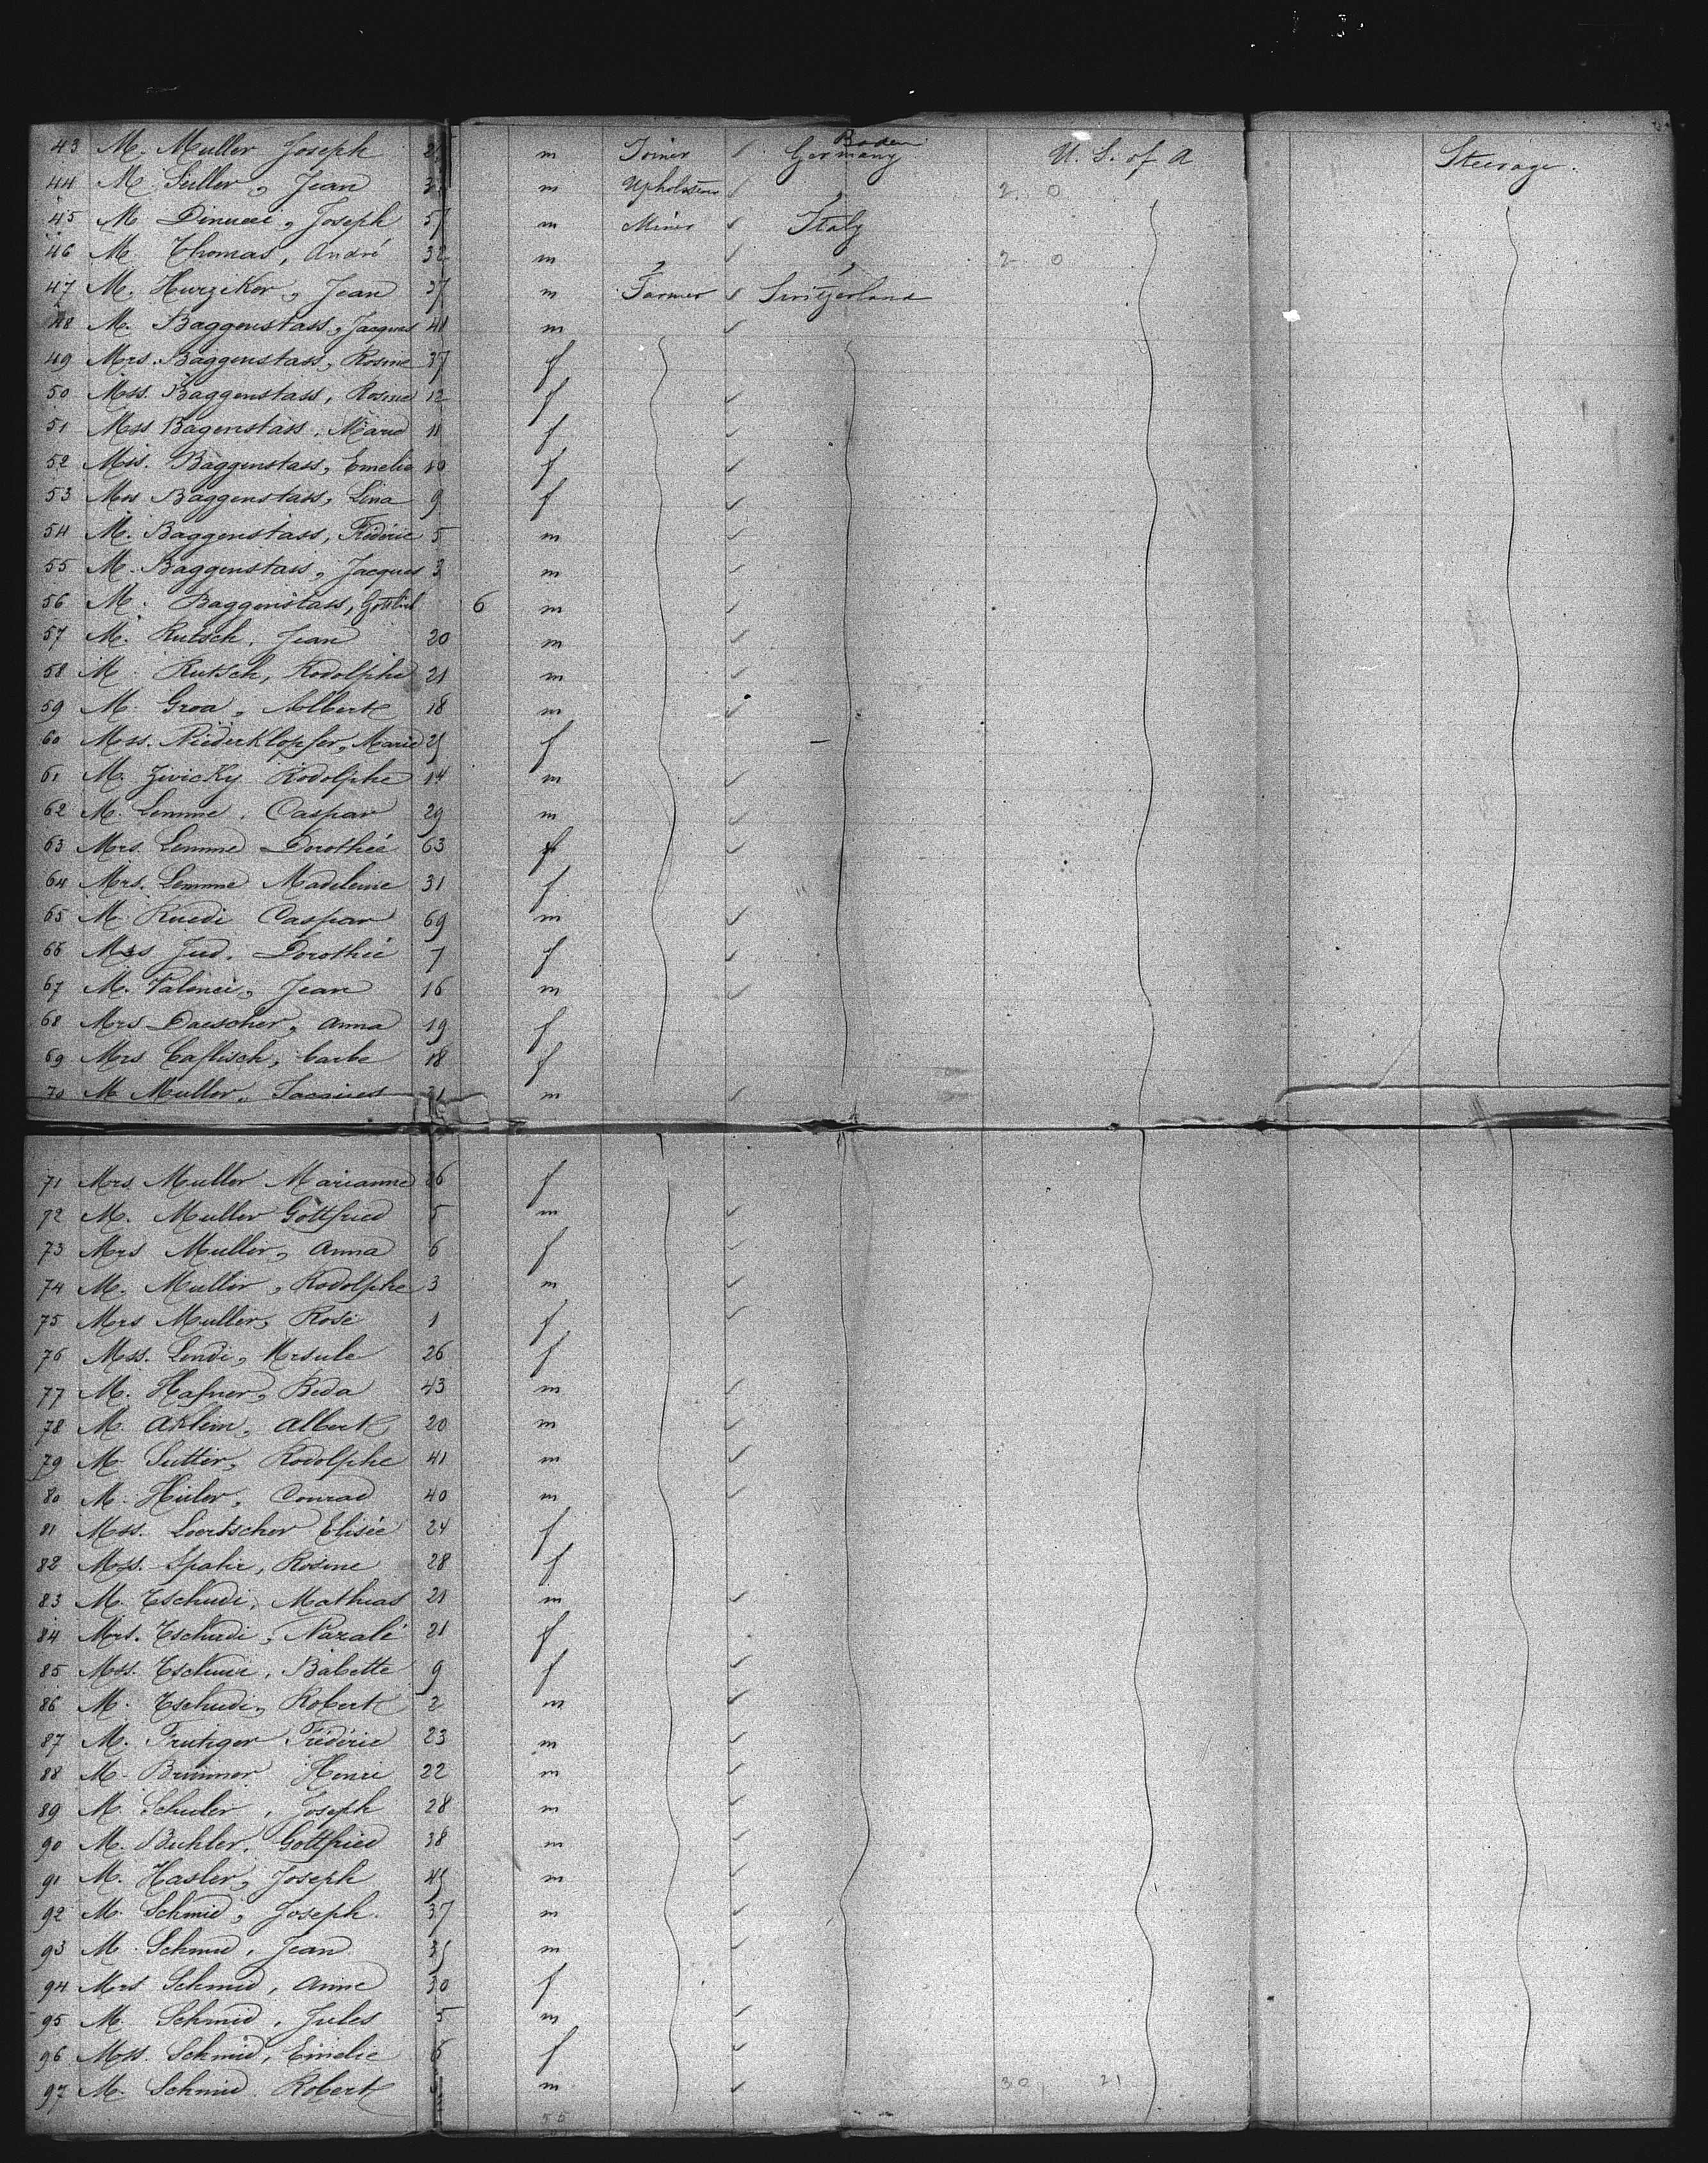 43 M. Muller Joseph 2 m Joiner Baden Germany U. S. of A Steerage.
44 M. Suller, Jean 3 m Upholsterer " 2 0
45 M. Dinucci, Joseph 57 m Miner Italy
46 M. Thomas, André 32 m " " 2 0
47 M. Hurziker, Jean 37 m Farmer Switzerland
48 M. Baggenstass, Jacques 41 m
49 Mrs. Baggenstass, Rosine 37 f
50 Mss. Baggenstass, Rosine 12 f
51 Mss Bagenstass, Marie 11 f
52 Mss. Baggenstass, Emelie 10 f
53 Mss Baggenstass, Lina 9 f
54 M. Baggenstass, Fréderic 5 m
55 M. Baggenstass, Jacques 3 m
56 M. Baggenstass, Gottlieb 6 m
57 M. Rutsch, Jean 20 m
58 M. Rutsch, Rodolphe 21 m
59 M. Groa, Albert 18 m
60 Mss. Niederklopfer, Marie 25 f
61 M. Zwicky Rodolphe 14 m
62 M. Lemme, Caspar 29 m
63 Mrs. Lemme Dorothée 63 f
64 Mrs. Lemme Madeleine 31 f
65 M. Ruedi Caspar 69 m
66 Mss Jud, Dorothée 7 f
67 M. Valenci, Jean 16 m
68 Mrs Daescher, Anna 19 f
69 Mrs Caflisch, Barbe 18 f
70 M Muller, Jacques 31 m
71 Mrs Muller Marianne 26 f
72 M. Muller Gottfried 5 m
73 Mrs Muller, Anna 6 f
74 M. Muller, Rodolphe 3 m
75 Mrs Muller, Rose 1 f
76 Mss. Lendi, Ursule 26 f
77 M. Hafner, Beda 43 m
78 M. Aklein, Albert 20 m
79 M. Sutter, Rodolphe 41 m
80 M. Hieler, Conrad 40 m
81 Mss. Loertscher Elisée 24 f
82 Mss. Spahr, Rosine 28 f
83 M. Tschudi, Mathias 21 m
84 Mrs. Tschudi, Nazalé 21 f
85 Mss. Tschudi, Babette 9 f
86 M. Tschudi, Robert 2 m
87 M. Frutiger Fréderic 23 m
88 M. Brunner Henri 22 m
89 M. Schuler, Joseph 28 m
90 M. Buhler, Gottfried 38 m
91 M. Hasler, Joseph 45 m
92 M. Schmid, Joseph 37 m
93 M. Schmid, Jean 35 m
94 Mrs Schmid, Anne 30 f
95 M. Schmid, Jules 5 m
96 Mss. Schmid, Emelie 6 f
97 M. Schmid Robert m 30 21
55